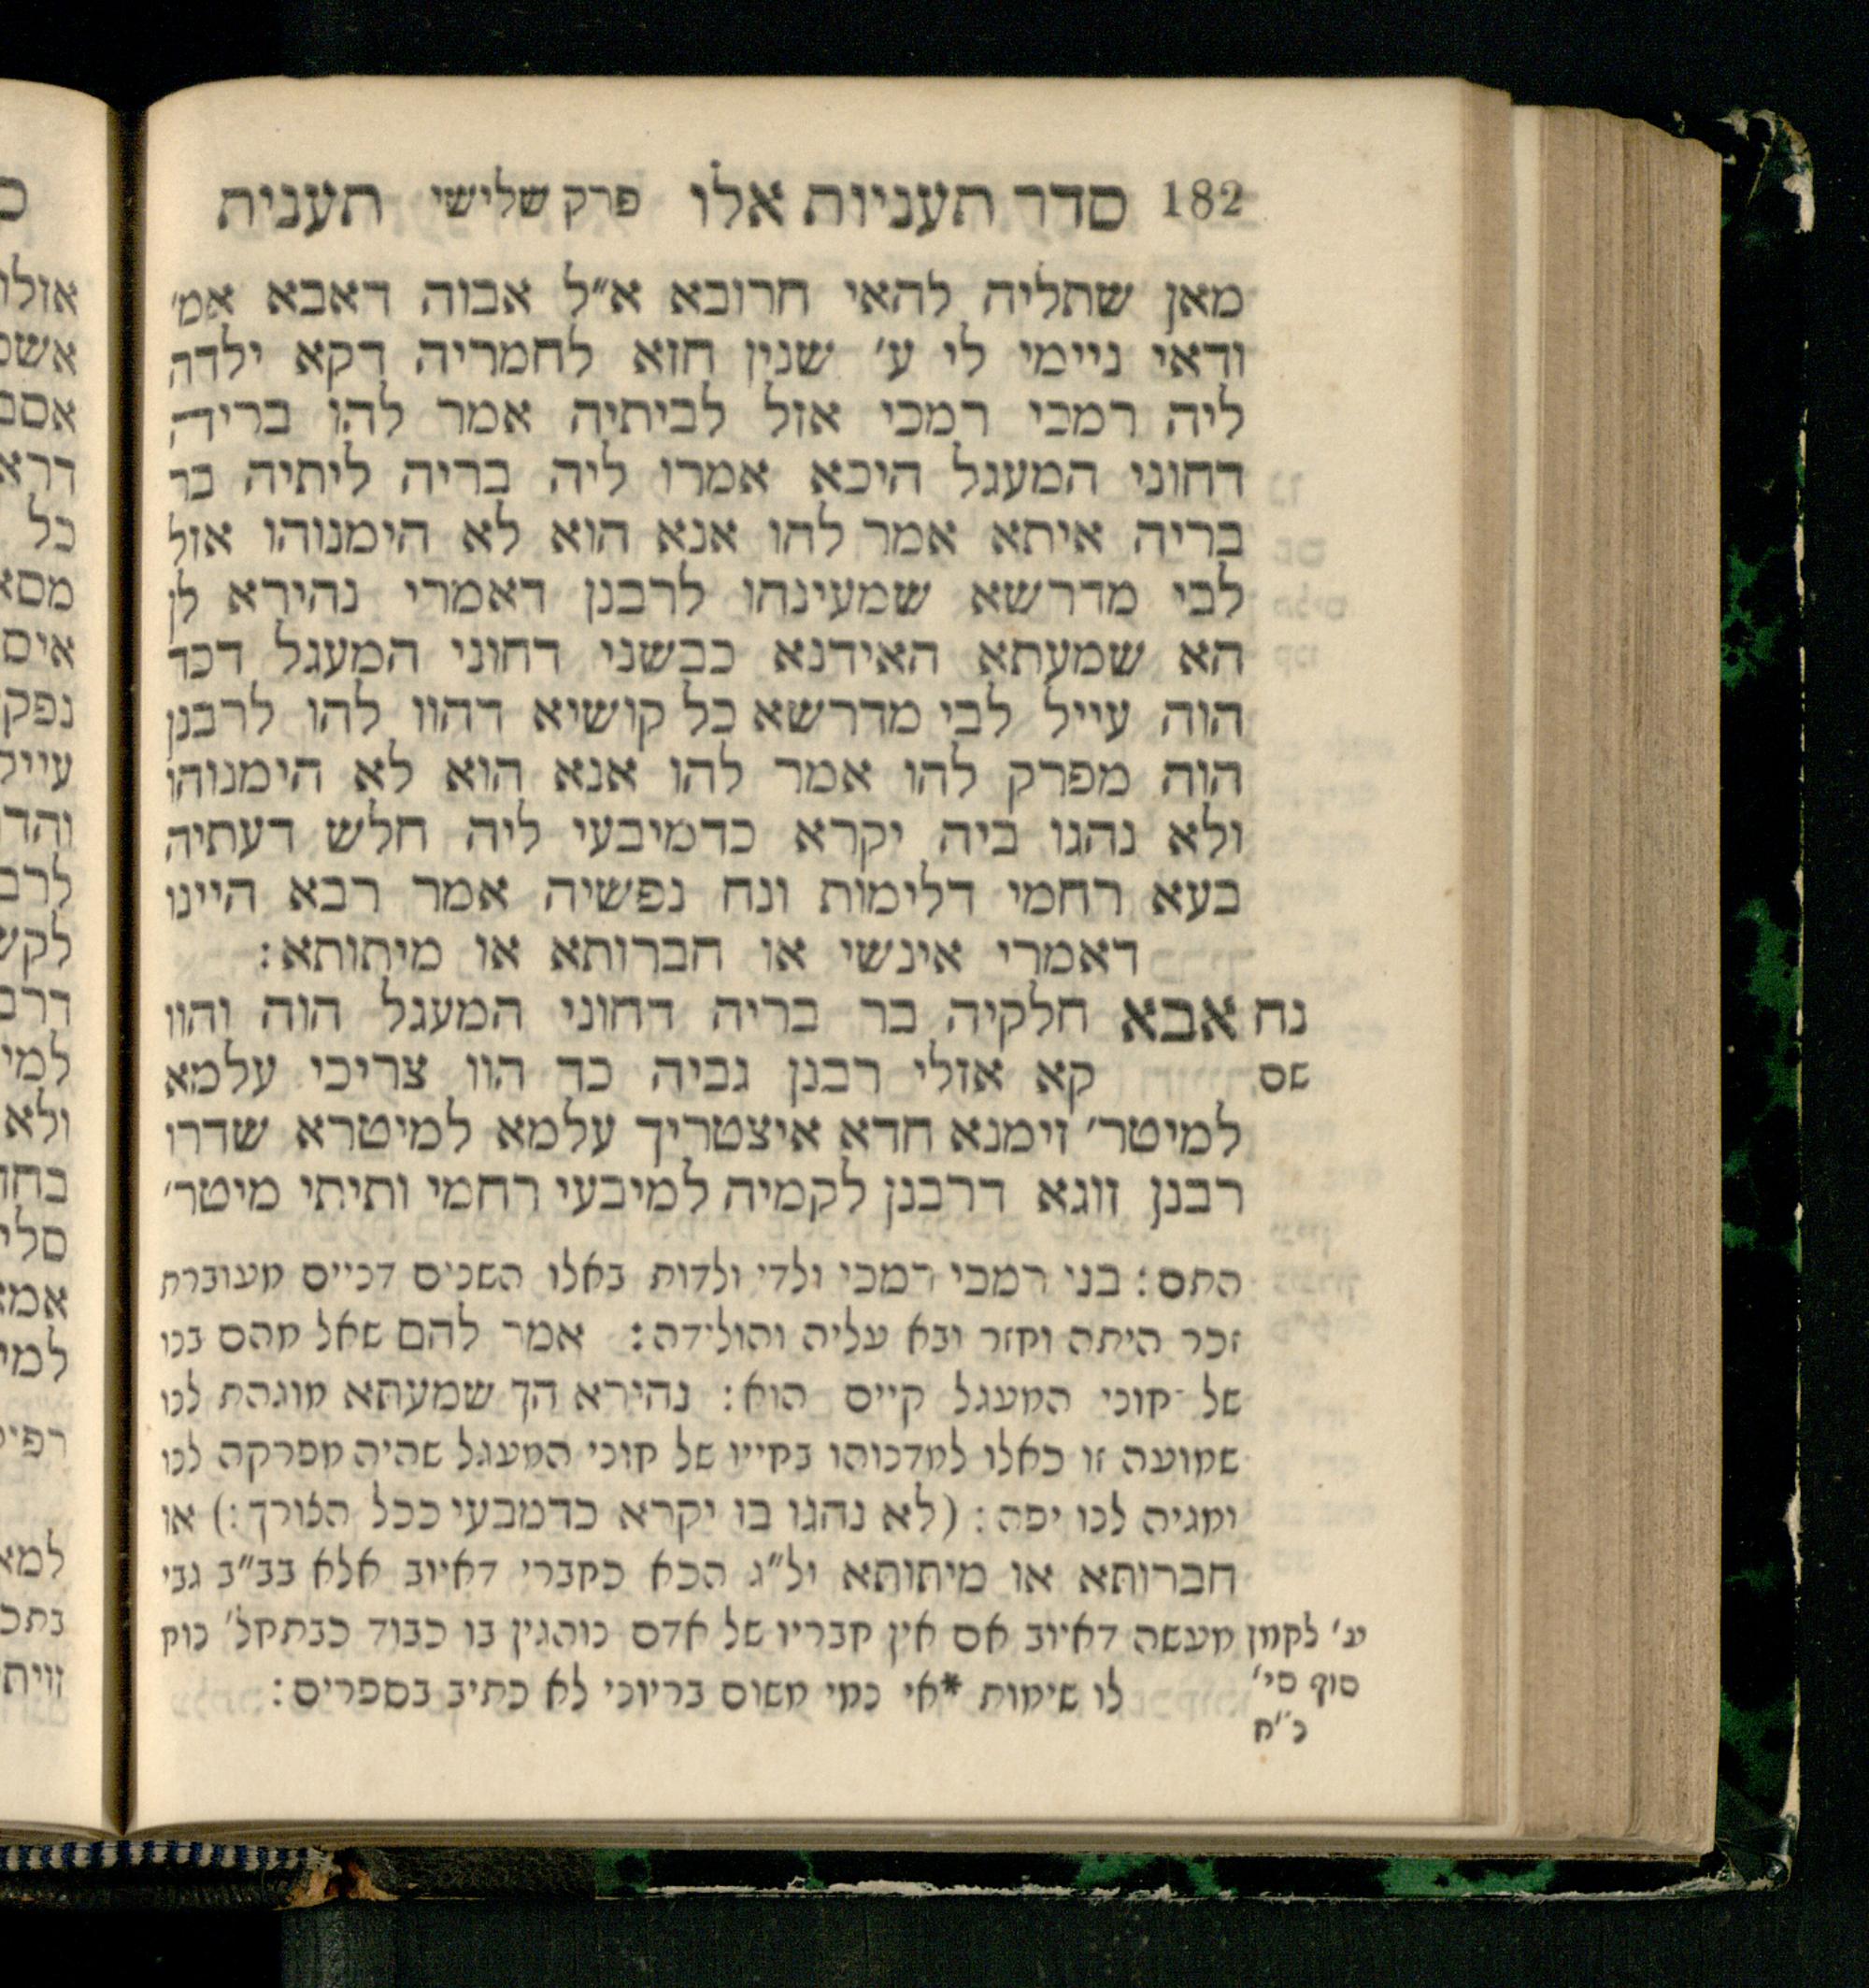 182 סדר תעניות אלו פרק שלישי תענית
מאן שתליה להאי חרובא א״ל אבוה דאבא אמ׳
ודאי ניימי לי ע׳ שנין חזא לחמריה דקא ילדה
ליה רמכי רמכי אזל לביתיה אמר להו בריה
דחוני המעגל היכא אמרו ליה בריה ליתיה בר
בריה איתא אמר להו אנא הוא לא הימנוהו אזל
לבי מדרשא שמעינהו לרבנן דאמרי נהירא לן
הא שמעתא האידנא כבשני דחוני המעגל דכד
הוה עייל לבי מדרשא כל קושיא דהוו להו לרבנן
הוה מפרק להו אמר להו אנא הוא לא הימנוהו
ולא נהגו ביה יקרא כדמיבעי ליה חלש דעתיה
בעא רחמי דלימות ונח נפשיה אמר רבא היינו
דאמרי אינשי או חברותא או מיתותא:
נח אבא חלקיה בר בריה דחוני המעגל הוה והוו
שם קא אזלי רבנן גביה כד הוו צריכי עלמא
למיטר׳ זימנא חדא איצטריך עלמא למיטרא שדרו
רבנן זוגא דרבנן לקמיה למיבעי רחמי ותיתי מיטר׳
התם: בני רמכי רמכי ולדי ולדות באלו השנים דניים מעוברת
זכר היתה וחזר ובא עליה והולידה: אמר להם שאל מהם בנו
של חוני המעגל קיים הוא: נהירא הך שמעתא מוגהת לנו
שמועה זו כאלו למדנוהו בחייו של חוני המעגל שהיה מפרקה לנו
ומגיה לנו יפה: (לא נהגו בו יקרא כדמבעי ככל הצורך:) או
חברותא או מיתותא ול״ג הכא כחברי דאיוב אלא בב״ב גבי
ע׳ לקמן מעשה דאיוב אם אין חבריו של אדם נוהגין בו כבוד כבתחל׳ נוח
סוף סי׳ לו שימות *אי נמי משום בריוני לא כתיב בספרים:
כ״ח